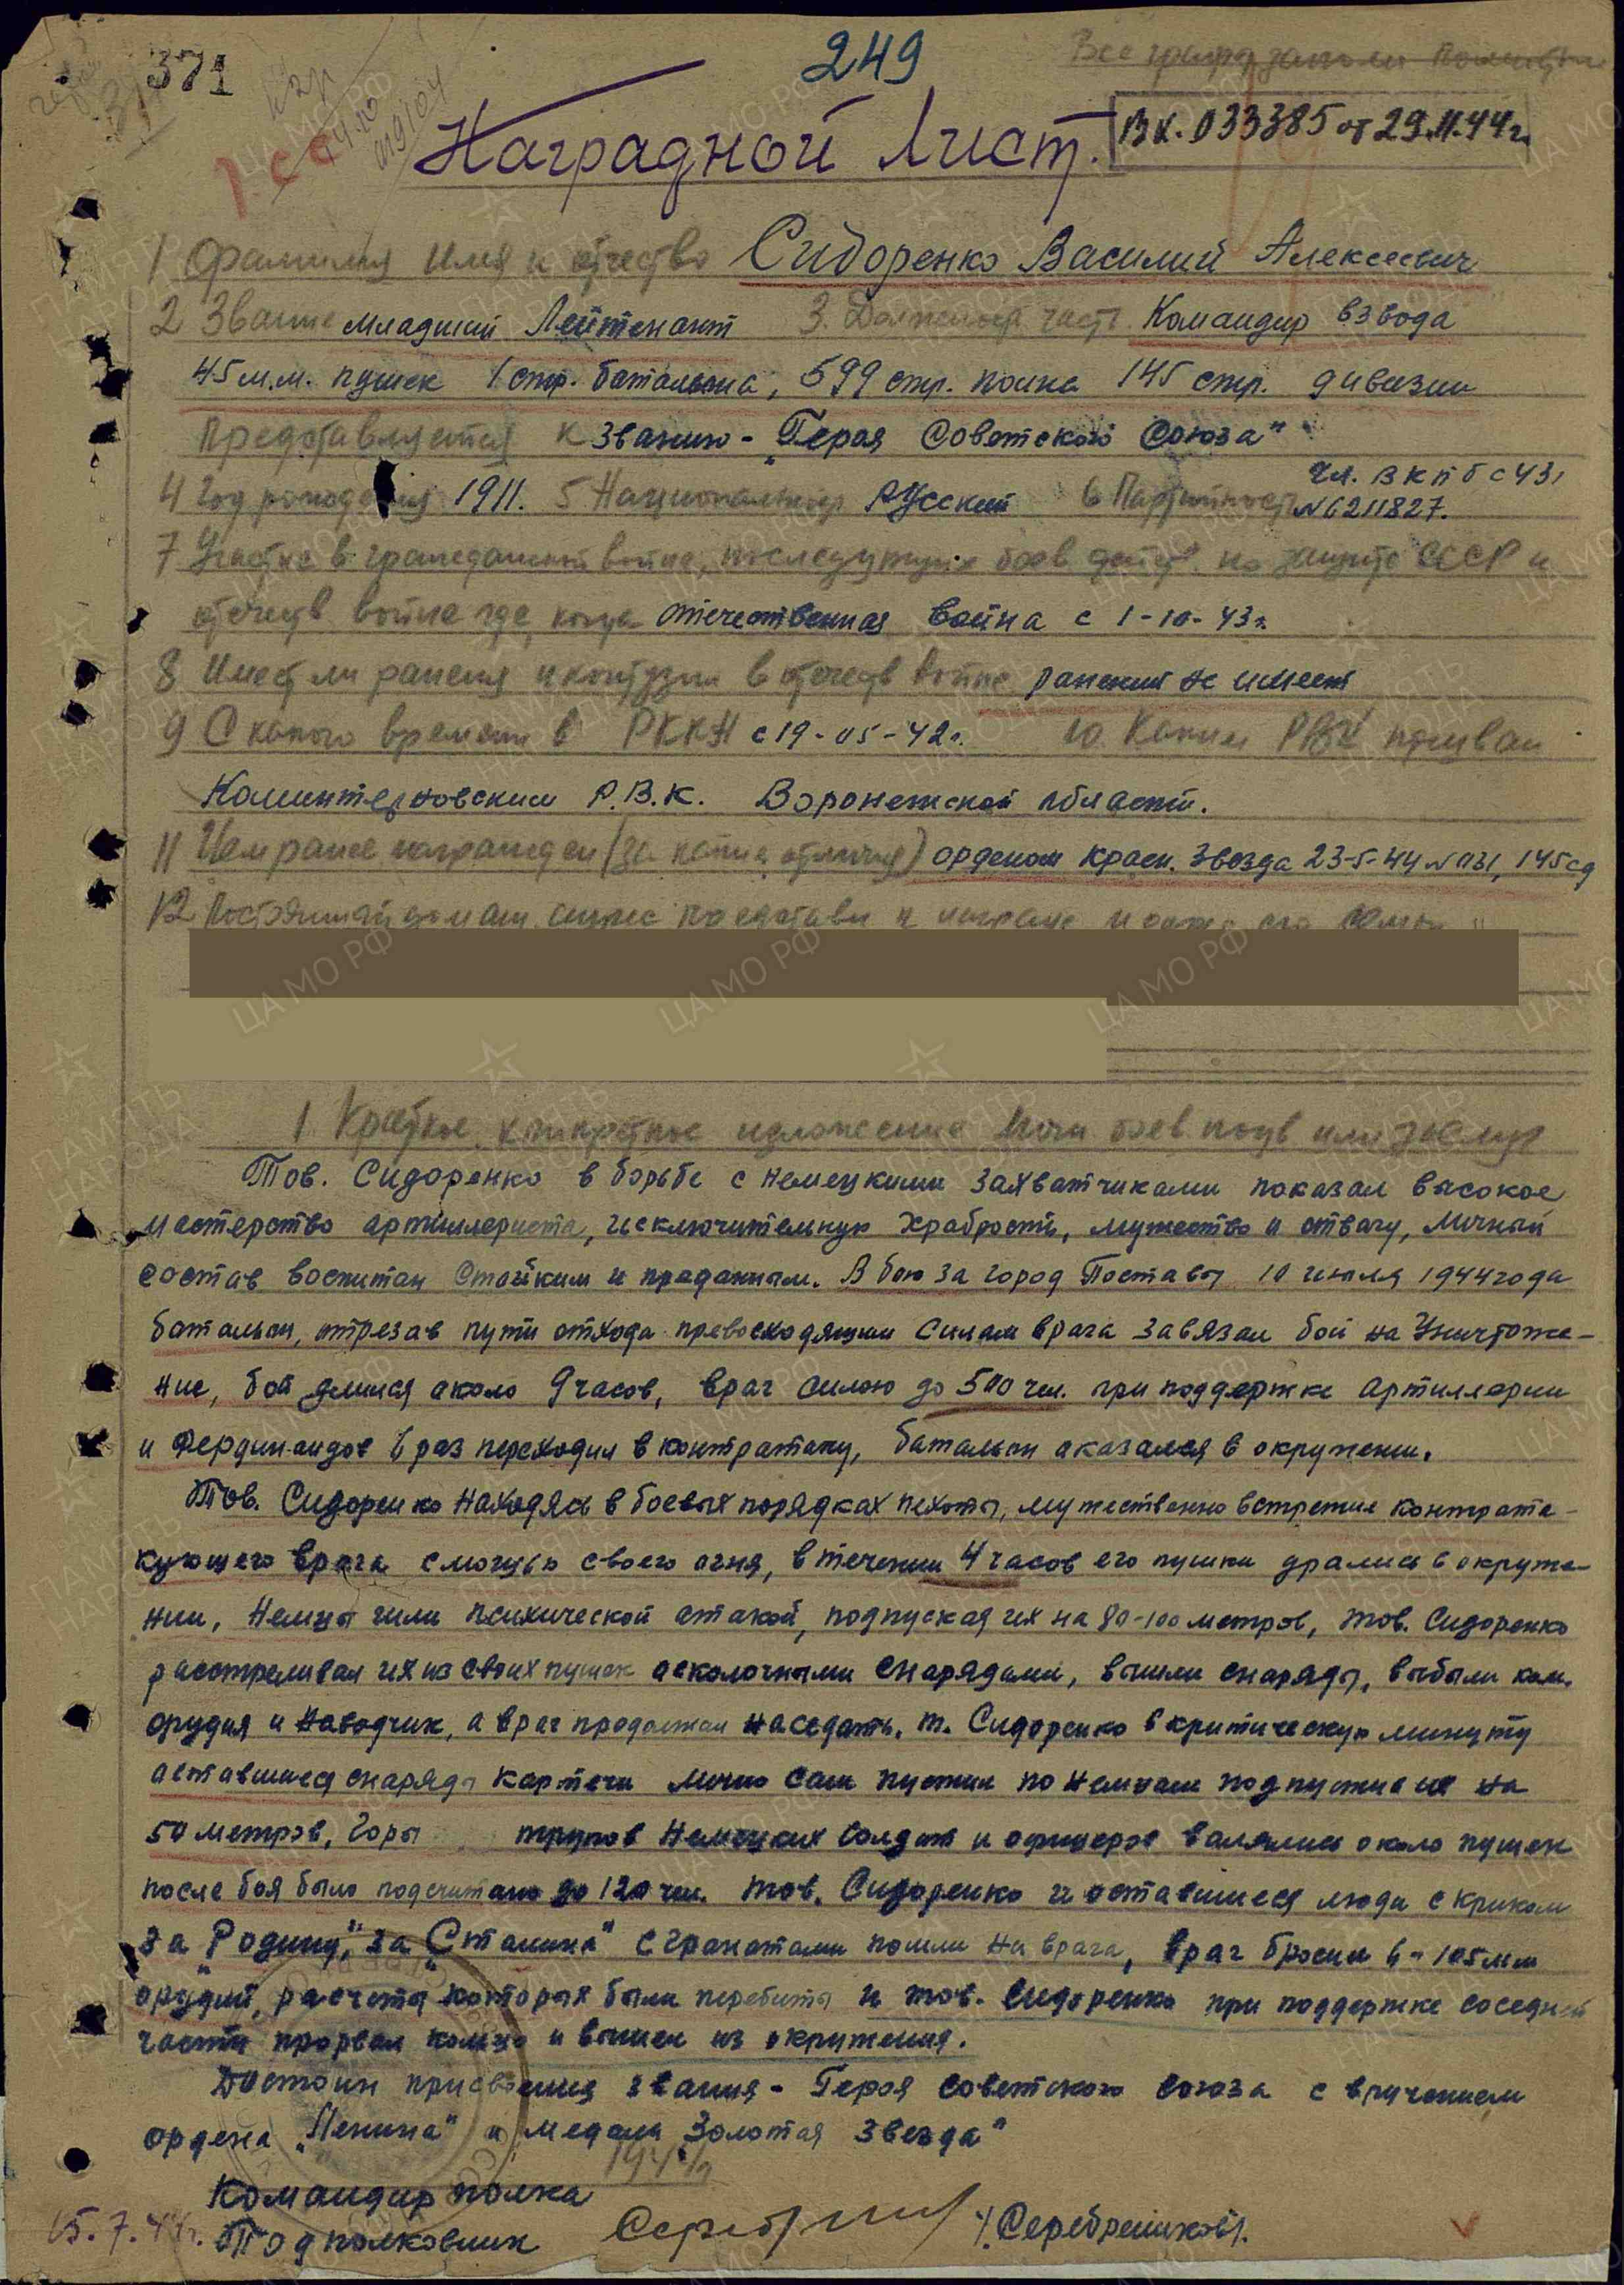 371
249
Вх. 033385 от 29.11.44г.
Наградной Лист.
1 Фамилия Имя и отчество Сидоренко Василий Алексеевич
2 Звание младший Лейтенант 3. Должность часть Командир взвода
45 м.м. пушек 1 стр. батальона, 599 стр. полка 145 стр. дивизии
Представляется к званию - "Героя Советского Союза"
чл. ВКПб с 43г
4 Год рождения 1911. 5 Национальность Русский 6 Партийность №6211827.
7 Участие в гражданской войне, последующих боев действ. по защите СССР и
отечеств войне где, когда Отечественная война с 1-10-43г.
8 Имеет ли ранения и контузии в отечеств войне ранений не имеет
9 С какого времени в РККА с 19-05-42г. 10 Каким РВК призван
Коминтерновским Р.В.К. Воронежской области.
11 Чем ранее награжден (за какие отличия) орденом красн. Звезда 23-5-44 145сд
12 Постоянный домаш. адрес представл к награде и адрес его семьи
1 Краткое, конкретное изложение личн боев подв или заслуг
Тов. Сидоренко в борьбе с немецкими захватчиками показал высокое
мастерство артиллериста, исключительную храбрость, мужество и отвагу, личный
состав воспитан стойким и преданным. В бою за город Поставы 10 июля 1944 года
батальон, отрезав пути отхода превосходящим силам врага завязал бой на Уничтоже-
ние, бой длился около 9 часов, враг силою до 500 чел. при поддержке артиллерии
и Фердинандов 6 раз переходил в контратаку, батальон оказался в окружении.
Тов. Сидоренко находясь в боевых порядках пехоты, мужественно встретил контрата-
кующего врага с мощью своего огня, в течении 4 часов его пушки дрались в окруже-
нии, Немцы шли психической атакой, подпуская их на 80-100 метров, тов. Сидоренко
расстреливал их из своих пушек осколочными снарядами, вышли снаряды, выбыли ком.
орудия и наводчик, а враг продолжал наседать. т. Сидоренко в критическую минуту
оставшиеся снаряды картечи лично сам пустил по немцам подпустив их на
50 метров, Горы трупов Немецких солдат и офицеров валялись около пушек
после боя было подсчитано до 120 чел. тов. Сидоренко и оставшиеся люди с криком
за "Родину", за "Сталина" с гранатами пошли на врага, враг бросил 6 - 105мм
орудий, расчеты которых были перебиты и тов. Сидоренко при поддержке соседней
части прорвал кольцо и вышел из окружения.
Достоин присвоения звания - Героя Советского Союза с вручением
ордена "Ленина" и медали "Золотая Звезда"
Командир полка
15.7.44г. Подполковник /Серебреников/.